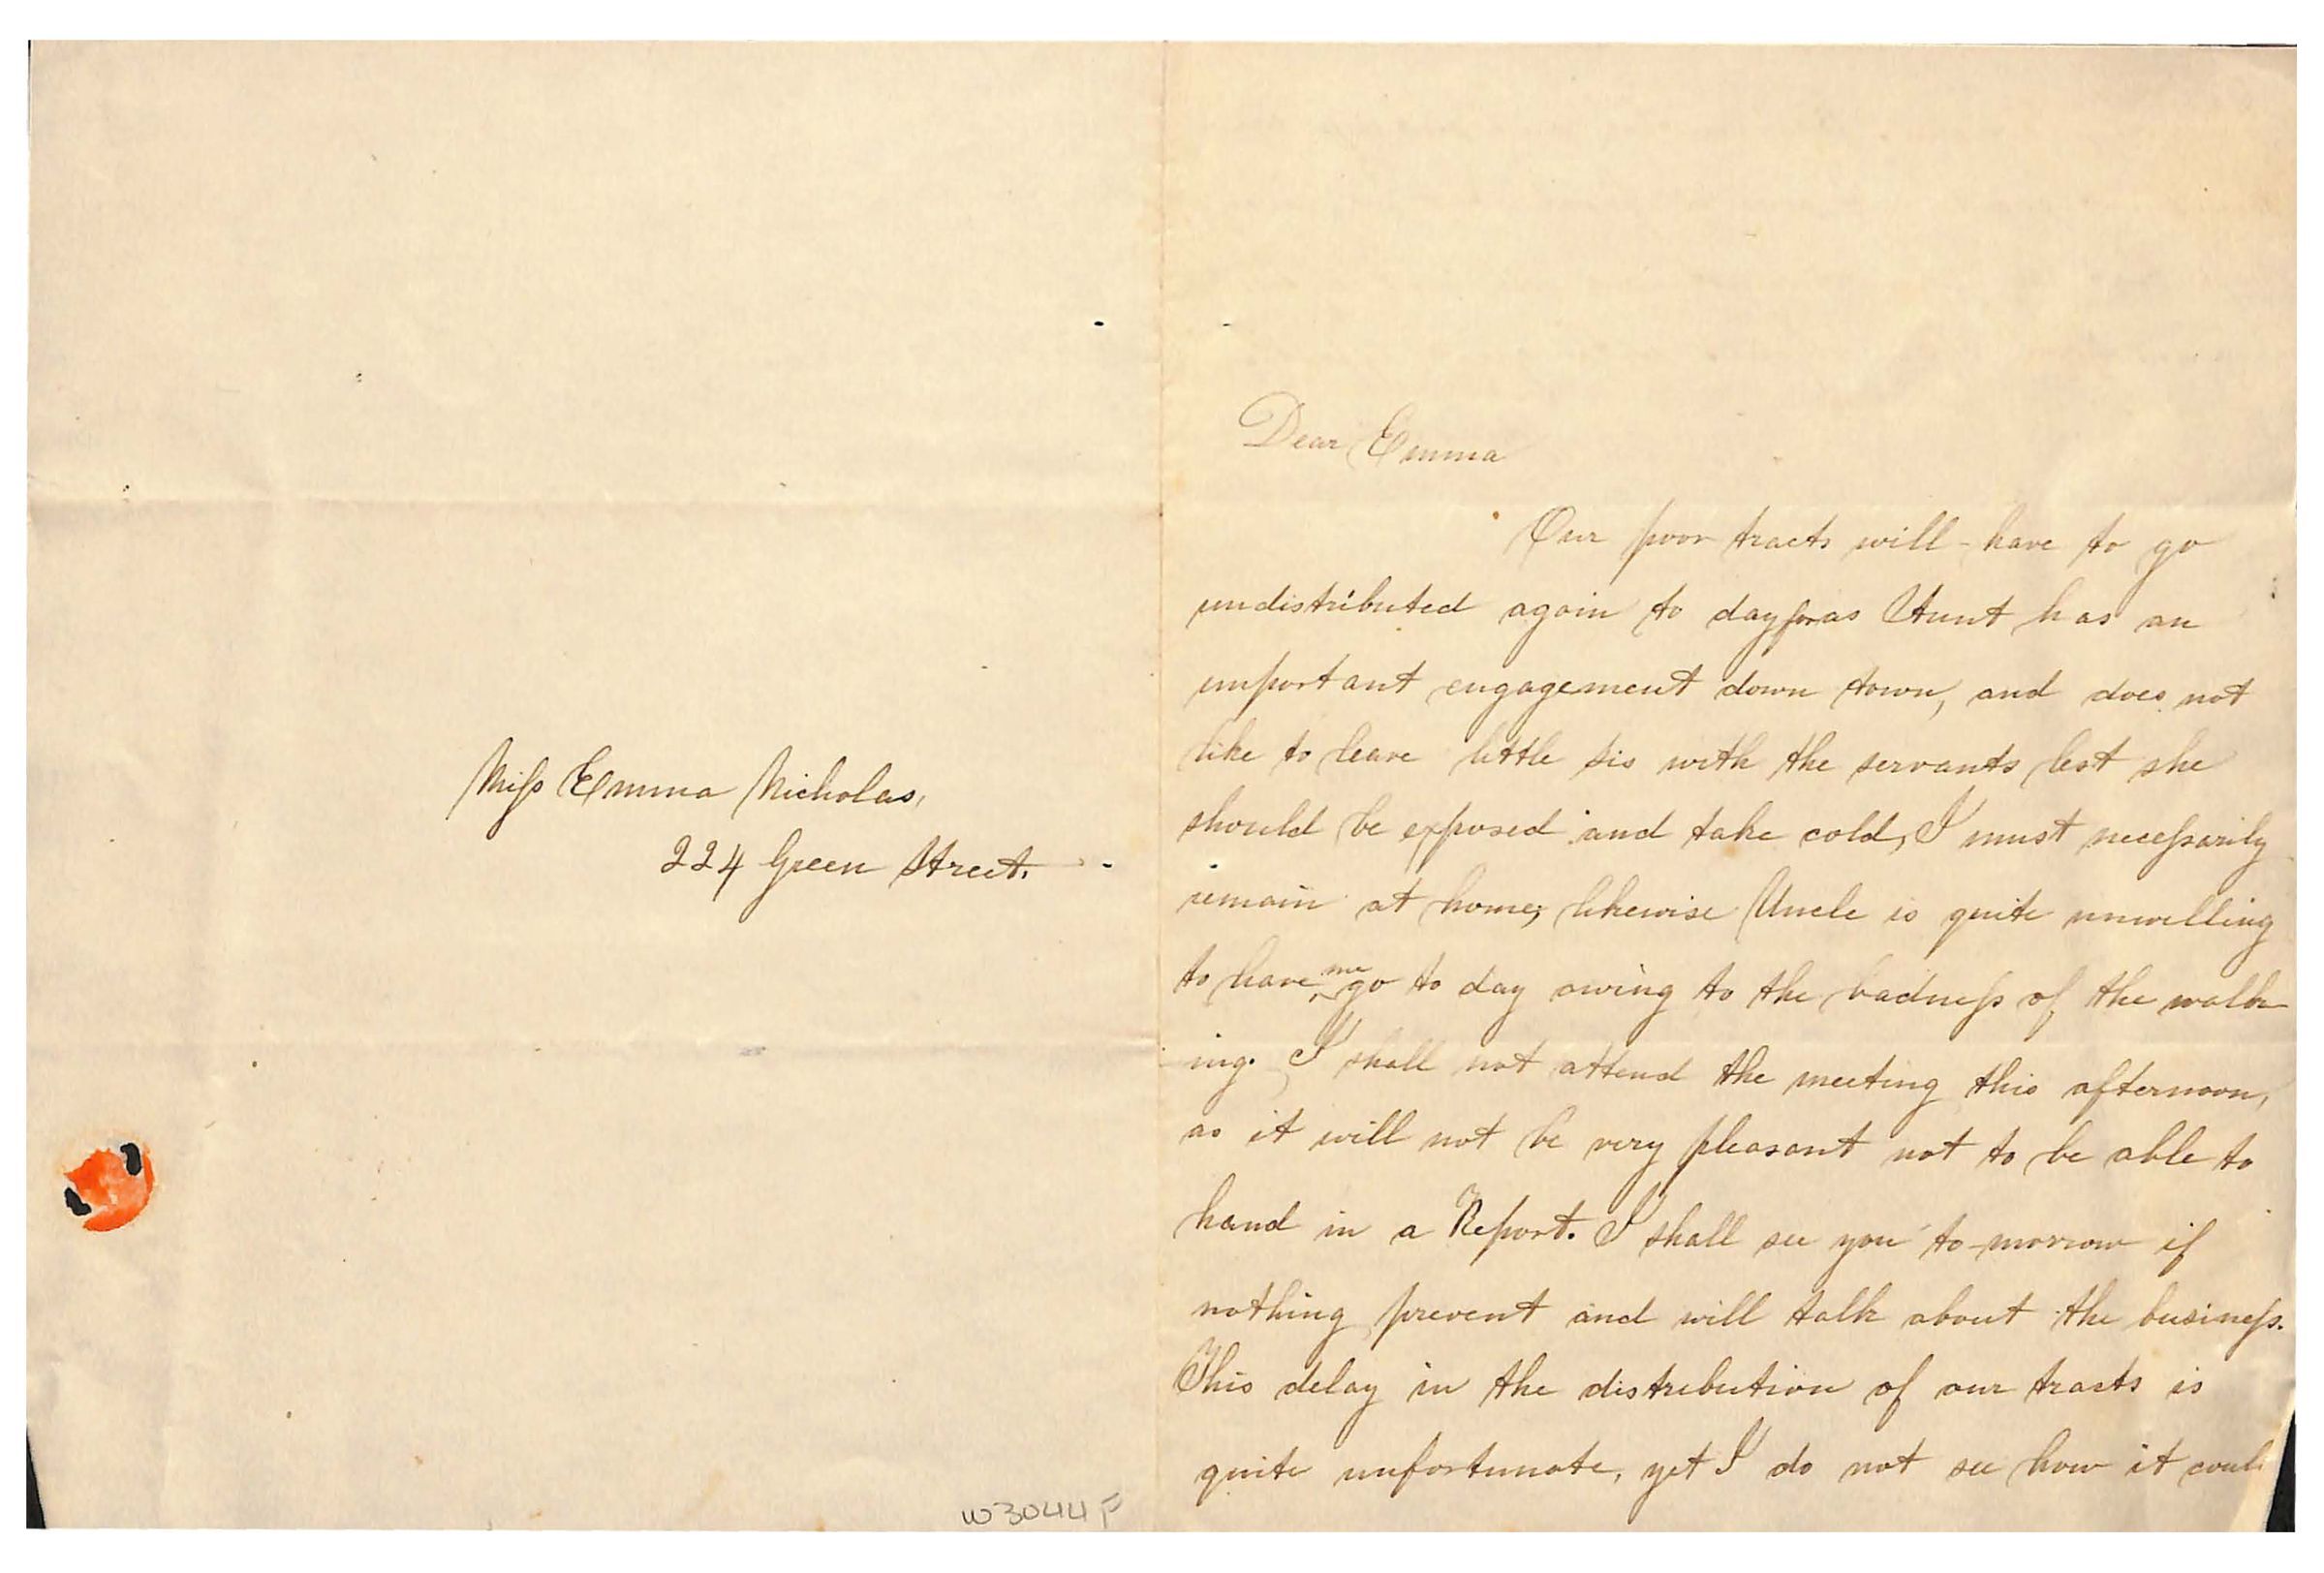 Miss Emma Nicholas,
224 Green Street.
W3044F
Dear Emma
Our poor tracts will have to go
undistributed again to day for as Aunt has an
important engagement down town, and does not
like to leave little sis with the servants lest she
should be exposed and take cold, I must necessarily
remain at home; likewise Uncle is quite unwilling
to have me go to day owing to the badness of the walk-
ing. I shall not attend the meeting this afternoon,
as it will not be very pleasant not to be able to
hand in a Report. I shall see you to-morrow if
nothing prevent and will talk about the business.
This delay in the distribution of our tracts is
quite unfortunate, yet I do not see how it coul